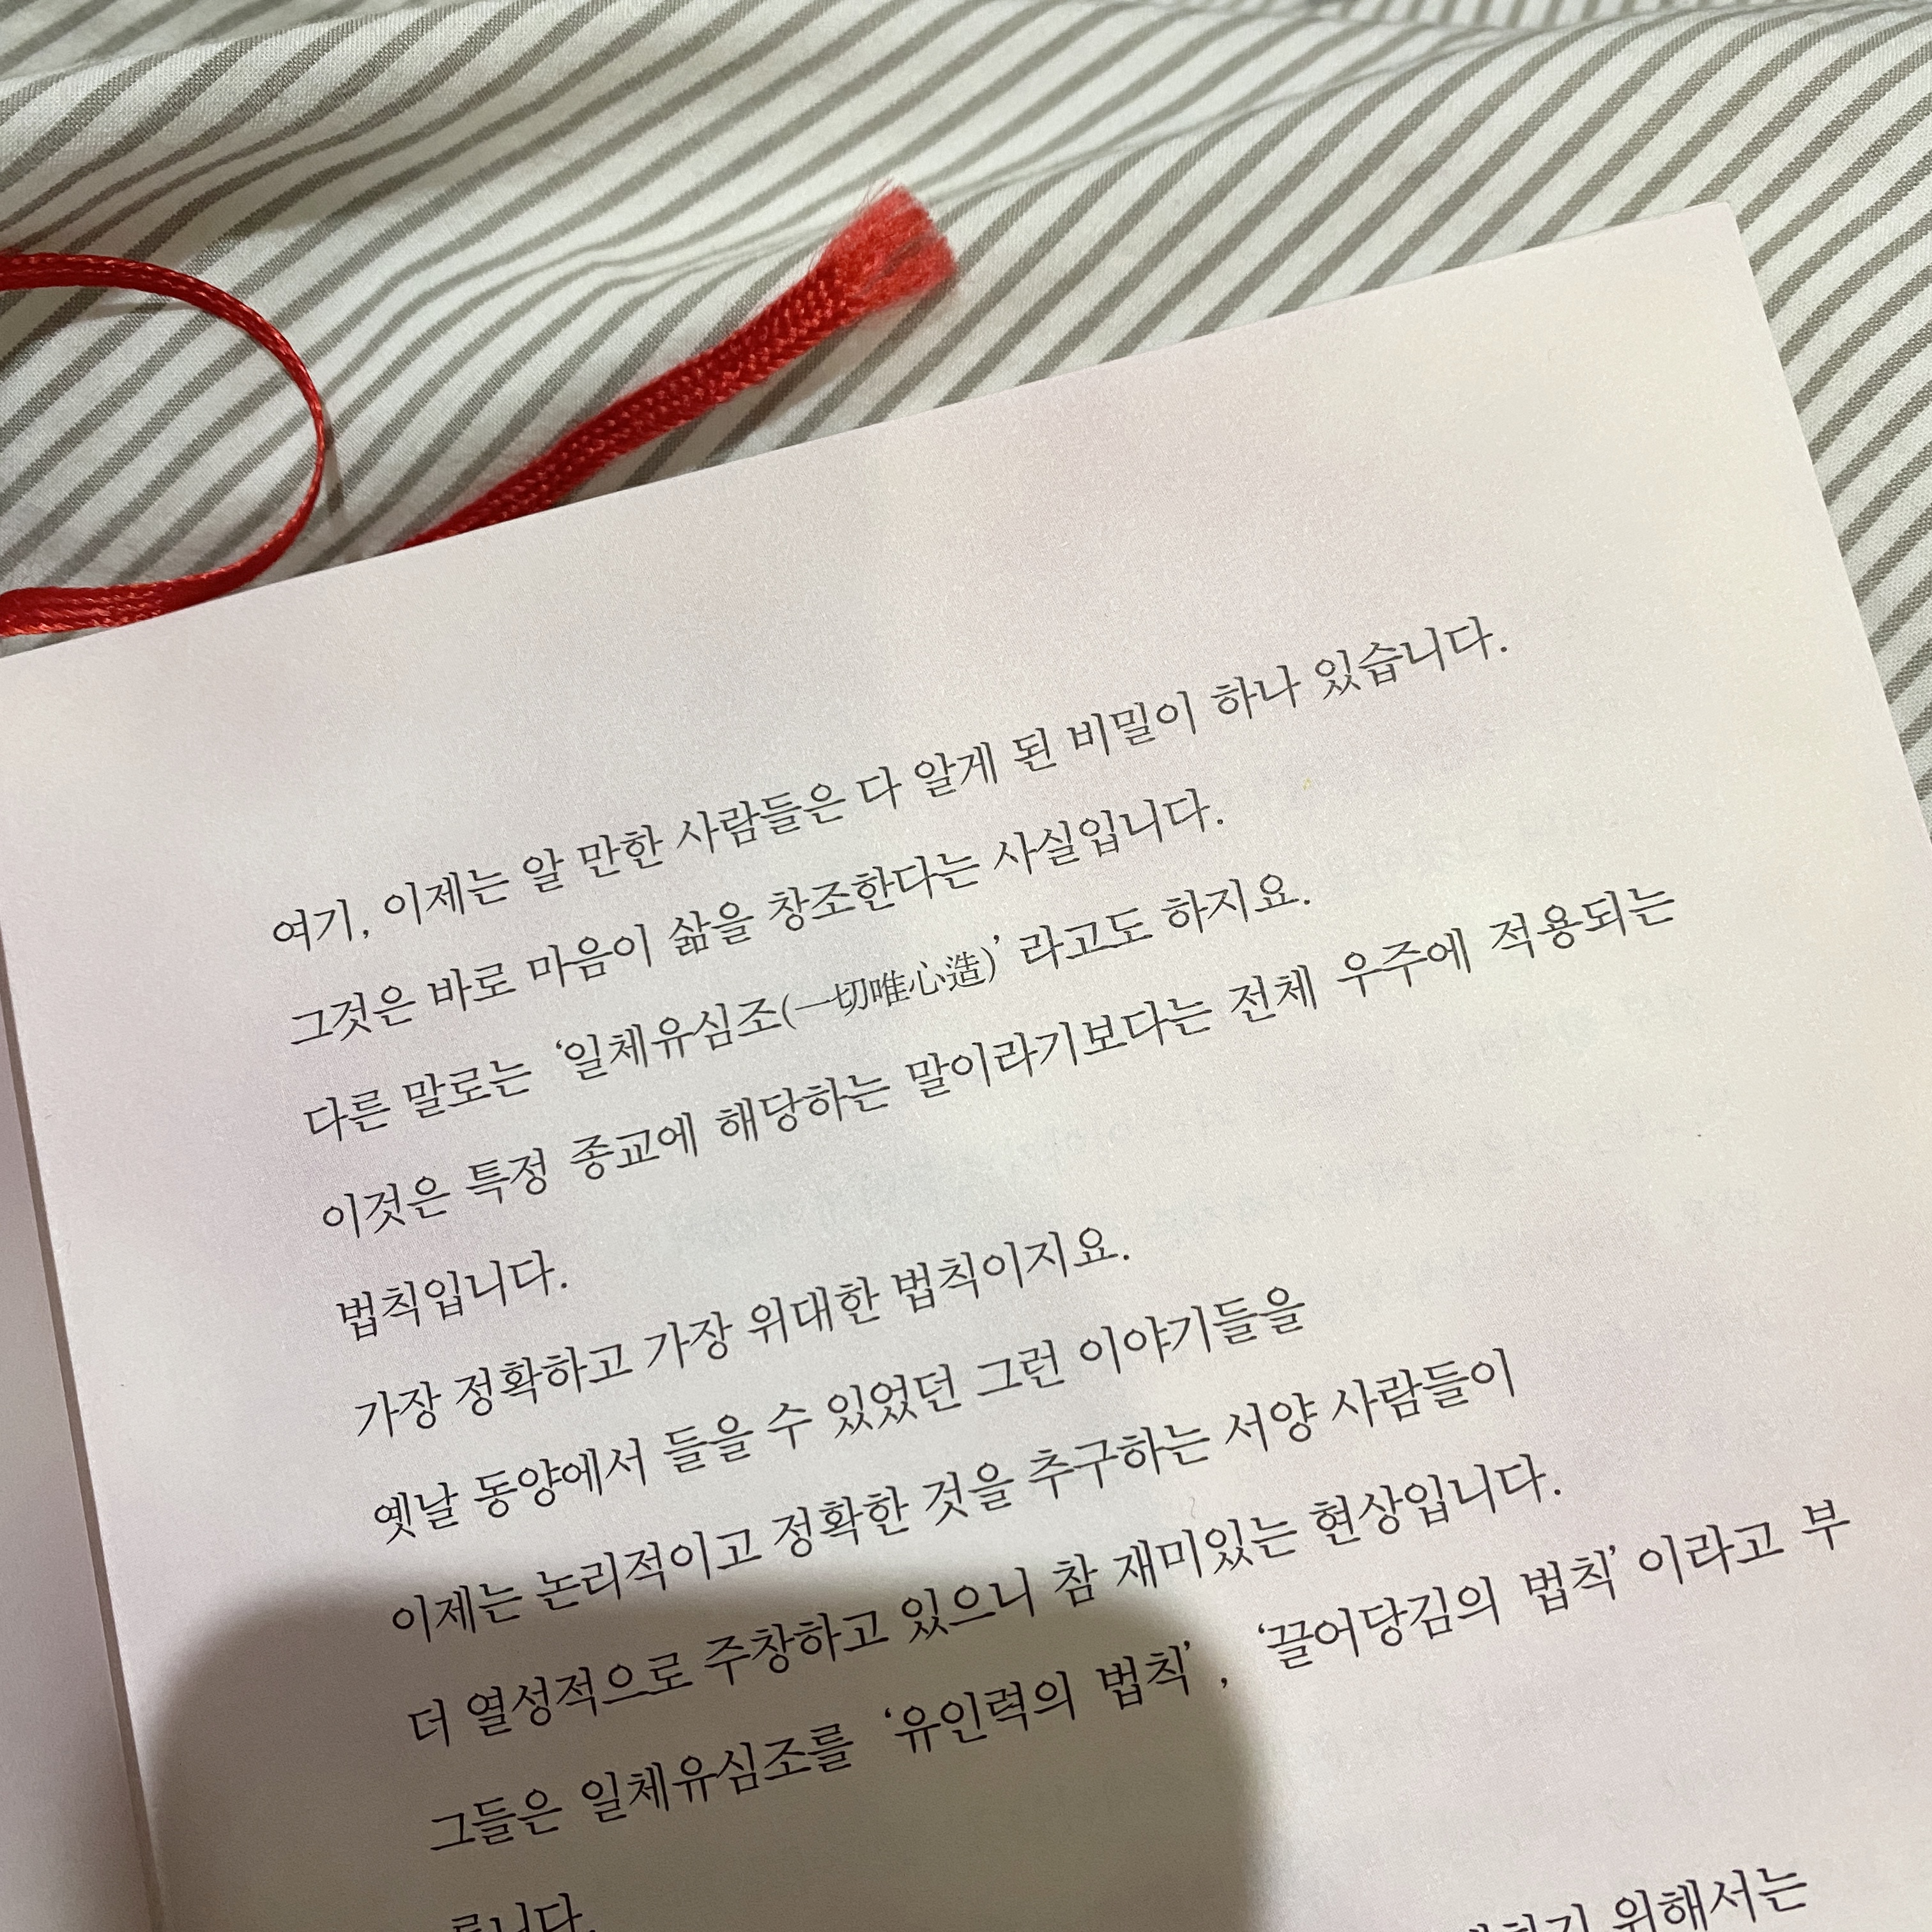 여기, 이제는 알 만한 사람들은 다 알게 된 비밀이 하나 있습니다.
그것은 바로 마음이 삶을 창조한다는 사실입니다.
다른 말로는 ‘일체유심조(一切唯心造)’ 라고도 하지요.
이것은 특정 종교에 해당하는 말이라기보다는 전체 우주에 적용되는
법칙입니다.
가장 정확하고 가장 위대한 법칙이지요.
옛날 동양에서 들을 수 있었던 그런 이야기들을
이제는 논리적이고 정확한 것을 추구하는 서양 사람들이
더 열성적으로 주창하고 있으니 참 재미있는 현상입니다.
그들은 일체유심조를 ‘유인력의 법칙’, ‘끌어당김의 법칙’ 이라고 부
릅니다.
위해서는